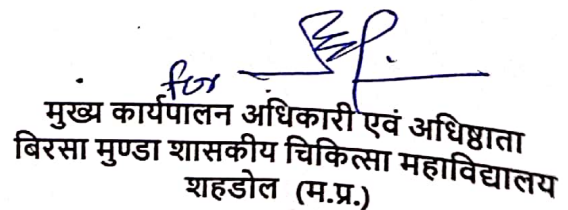 for
मुख्य कार्यपालन अधिकारी एवं अधिष्ठाता
बिरसा मुण्डा शासकीय चिकित्सा महाविद्यालय
शहडोल (म.प्र.)